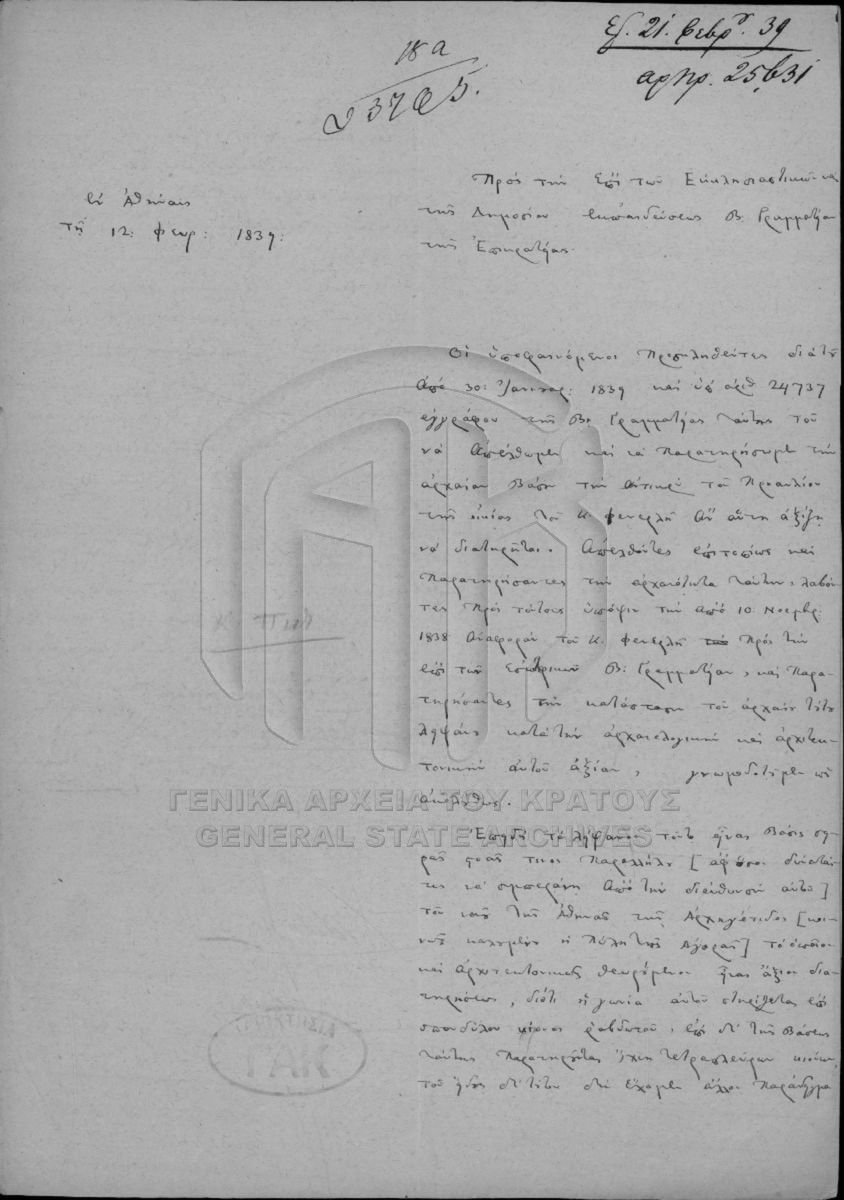 18α
23765.
Ἐξ. 21. Φεβρ. 39
αρ πρ. 25,631
ἐν Ἀθήναις
τῇ 12: Φευρ: 1839:
Πρὸς τὴν Ἐπὶ τῶν Ἐκκλησιαστικῶν καὶ
τῆς Δημοσίου ἐκπαιδεύσεως Β: Γραμματείαν
τῆς Ἐπικρατείας.
Οἱ ὑποφαινόμενοι προσκληθέντες διὰ τοῦ
ἀπὸ 30: Ἰαννουαρ: 1839 καὶ ὑπ ἀριθ 24737
ἐγγράφου τῆς Β: Γραμματείας ταύτης τοῦ
νὰ ἀπέλθωμεν καὶ νὰ παρατηρήσωμεν τὴν
ἀρχαίαν βάσιν τὴν ἀντικρὺ τοῦ προαυλίου
τῆς οἰκίας τοῦ Κ. Φενερλῆ ἂν αὕτη ἀξίζῃ
νὰ διατηρῆται. Ἀπελθόντες ἐπιτοπίως καὶ
παρατηρήσαντες τὴν ἀρχαιότητα ταύτην, λαβόν
τες πρὸς τούτοις ὑπόψιν τὴν ἀπὸ 10 Νοεμβρ:
1838 ἀναφορὰν τοῦ Κ. Φενερλῆ πρὸς τὴν
ἐπὶ τῶν Ἐσωτερικῶν Β: Γραμματείαν, καὶ παρα-
τηρήσαντες τὴν κατάστασιν τοῦ ἀρχαίου τούτου
λειψάνου κατὰ τὴν ἀρχαιολογικὴν καὶ ἀρχιτεκ-
τονικὴν αὐτοῦ ἀξίαν, γνωμοδοτοῦμεν ὡς
ἀκολούθως.
Ἐπειδὴ τὸ λείψανον τοῦτο εἶναι βάσις
στοᾶς τινος παραλλήλου [ἀφ ὅσον δύναταί
τις νὰ συμπεράνῃ ἀπὸ τὴν διεύθυνσιν αὐτοῦ]
τοῦ ναοῦ τῆς Ἀθηνᾶς τῆς Ἀρχηγέτιδος [κοι-
νῶς καλουμένης ἡ Πύλη τῆς Ἀγορᾶς] τὸ ὁποῖον
καὶ ἀρχιτεκτονικῶς θεωρούμενον εἶναι ἄξιον δια-
τηρήσεως, διότι ἡ γωνία αὐτοῦ στηρίζεται ἐπὶ
σπονδύλου κίονος ῥαβδωτοῦ, ἐπὶ δὲ τῆς βάσεως
ταύτης παρατηροῦνται ἴχνη τετραπλεύρων κιόνων,
τοῦ εἴδους δὲ τούτου δὲν ἔχομεν ἄλλο παράδειγμα
ΓΕΝΙΚΑ ΑΡΧΕΙΑ ΤΟΥ ΚΡΑΤΟΥΣ
GENERAL STATE ARCHIVES
ΙΔΙΟΚΤΗΣΙΑ
ΓΑΚ